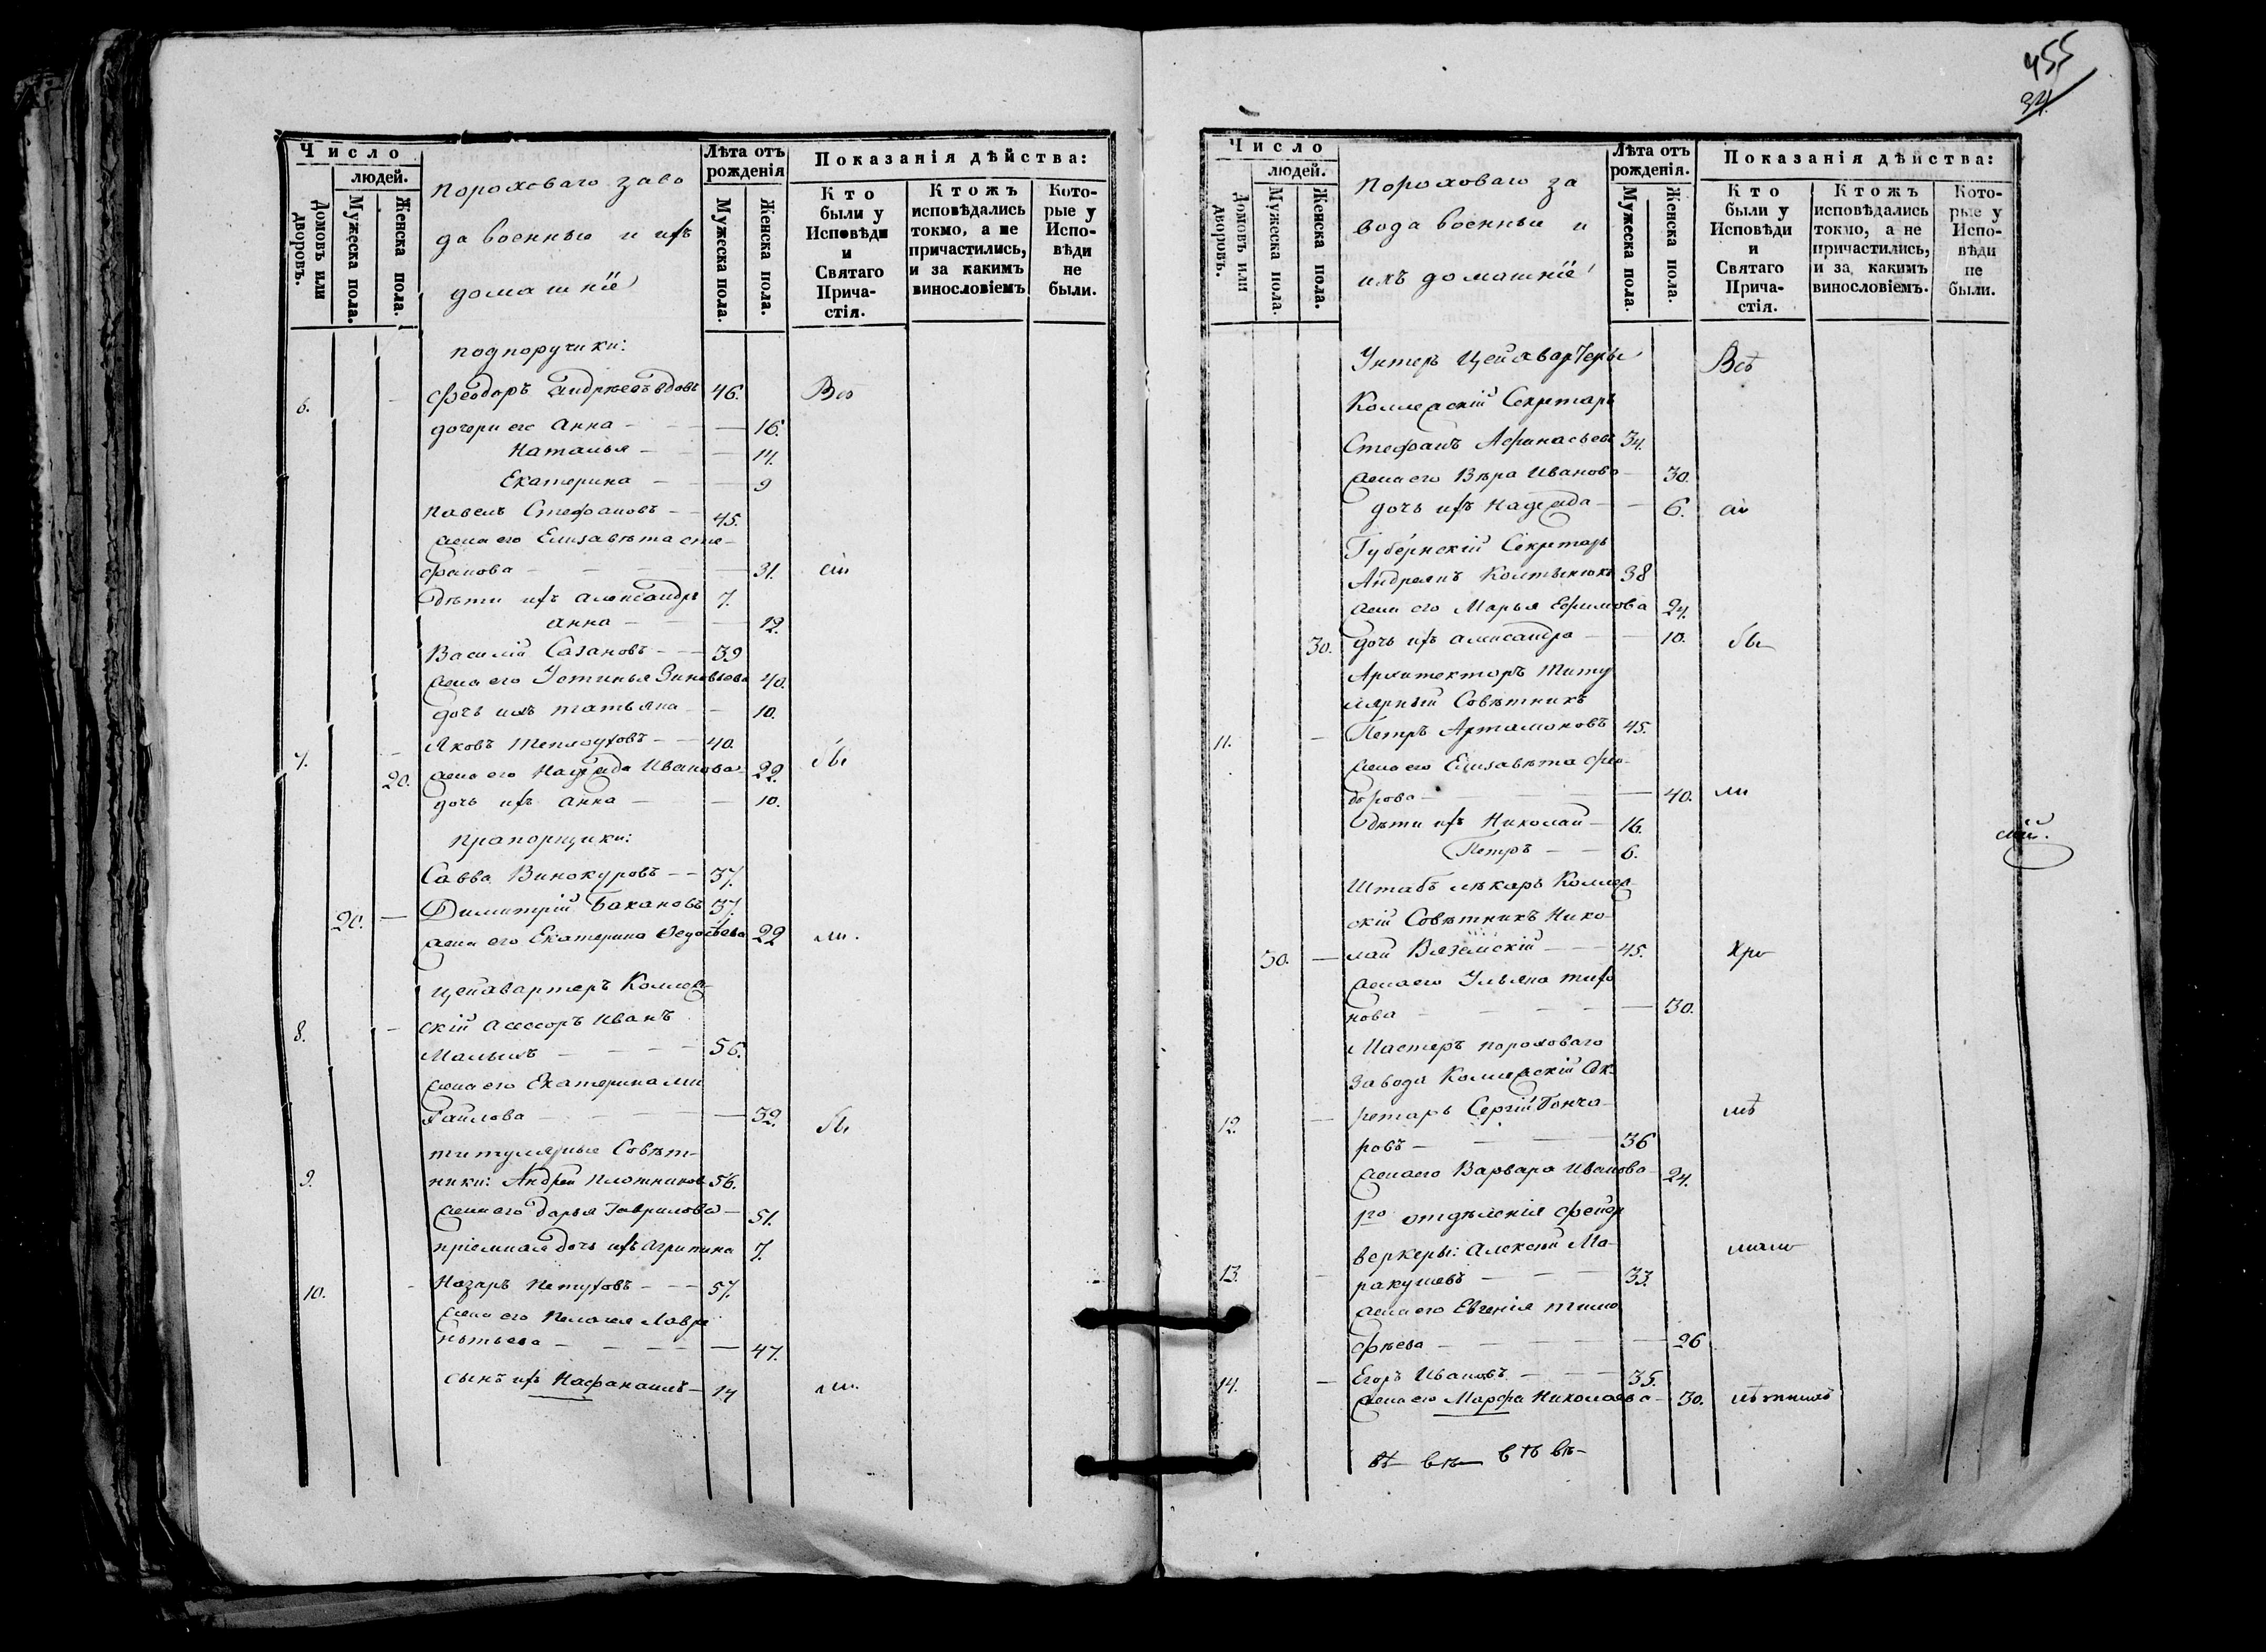 455
34.
Число
людей.
Домовъ или дворовъ.
Мужеска пола.
Женска пола.
Пороховаго заво
да военныи и ихъ
домашнїе
Лѣта отъ рожденія
Мужеска пола.
Женска пола.
Показанія дѣйства:
Кто были у Исповѣди и Святаго Прича-стія.
Ктожъ исповѣдались токмо, а не причастились, и за какимъ винословіемъ
Кото-рые у Испо-вѣди не были.
подпоручики:
6. Феодоръ Андрѣевъ вдовъ 46. Всѣ
дочери его Анна 16.
Наталья 14.
Екатерина 9
Павелъ Стефановъ 45.
жена его Елизавѣта сте-
фанова 31. сіи
дѣти ихъ Александръ 7.
Анна 12.
Василій Сазановъ 39
жена его Устинья Зиновьева 40.
дочь ихъ Татьяна 10.
7. Яковъ Теплоуховъ 40. бы
20. жена его Надежда Иванова 22.
дочь ихъ Анна 10.
Прапорщики:
Савва Винокуровъ 37.
20. Димитрій Бакановъ 37.
жена его Екатерина Федосѣева 22 ли.
Цейхвартеръ Коллеж-
8. скій асессоръ Иванъ
Малыхъ 56.
жена его Екатерина Ми
хаилова 32. бы
титулярные Совѣт-
9. ники: Андрей Плотников 56.
жена его Дарья Гаврилова 51.
пріемная дочь ихъ Агрипина 7.
10. Назаръ Петуховъ 57.
жена его Пелагея Лавре
нтьева 47.
сынъ ихъ Нафанаилъ 14 ли.
Число
людей.
Домовъ или дворовъ.
Мужеска пола.
Женска пола.
Пороховаго за
вода военныи и
ихъ домашніе
Лѣта отъ рожденія.
Мужеска пола.
Женска пола.
Показанія дѣйства:
Кто были у Исповѣди и Святаго Прича-стія.
Ктожъ исповѣдались токмо, а не причастились, и за какимъ винословіемъ.
Кото-рые у Испо-вѣди не были.
Унтеръ Цейхвартеры Всѣ
Коллежскій Секретарь
Стефанъ Афанасьевъ 34.
жена его Вѣра Иванова 30.
дочь ихъ Надежда 6. сіи
Губернскій Секретарь
Андреянъ 38
жена его Марья Ефимова 24.
30. дочь ихъ Александра 10. бы
Архитекторъ Титу
лярный Совѣтникъ
11. Петръ Артамоновъ 45.
жена его Елизавѣта фео-
дорова 40. ли
дѣти ихъ Николай 16.
Петръ 6.
Штабъ лѣкарь Коллеж-
скій Совѣтникъ Нико-
30. лай Вяземскій 45. Хри
жена его Ульяна тихо
нова 30.
Мастеръ пороховаго
завода Коллежскій Се-
12. кретарь Сергій Гонча-
ровъ 36
жена его Варвара Иванова 24.
1го отдѣленія фейер
веркеры: Алексѣй Ма-
13. ракушевъ 33.
жена его Евгенія тимо
фѣева 26
14. Егоръ Ивановъ 35.
жена его Марфа Николаева 30.